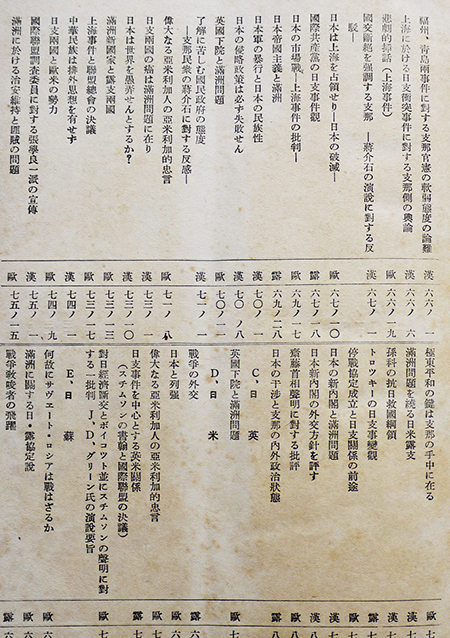 福州、靑島兩事件に對する支那官憲の軟弱態度の論難 漢 六六ノ 一
上海に於ける日支衝突事件に對する支那側の輿論 漢 六六ノ 六
悲劇的插話(上海事件) 歐 六六ノ 九
國交斷絕を強調する支那 ―蔣介石の演說に對する反
駁― 漢 六七ノ 一
日本は上海を占領せり―日本の破滅― 歐 六七ノ一〇
國際共產黨の日支事件觀 露 六七ノ 八
日本の市場戰、上海事件の批判― 歐 六九ノ一七
日本帝國主義と滿洲 露 六九ノ二八
日本軍の暴行と日本の民族性 漢 七〇ノ 一
日本の侵略政策は必ず失敗せん 漢 七〇ノ 八
英國下院と滿洲問題 歐 七〇ノ一一
了解に苦しむ國民政府の態度
―支那民衆の蔣介石に對する反感― 漢 七一ノ 一
偉大なる亞米利加人の亞米利加的忠言 歐 七一ノ 八
日支兩國の癌は滿洲問題に在り 漢 七三ノ 一
日本は世界を愚弄せんとするか? 漢 七三ノ一〇
滿洲新國家と露支兩國 歐 七三ノ一三
上海事件と聯盟總會の決議 歐
中華民族は排外思想を有せず 漢 七四ノ 一
日支兩國と歐米の勢力 歐 七四ノ 九
國際聯盟調査委員に對する張學良一派の宣傳 漢 七五ノ 一
滿洲に於ける治安維持と匪賊の問題 歐 七五ノ一五
極東平和の鍵は支那の手中に在る
滿洲問題を繞る日米露支
孫科の抗日救國綱領
トロツキーの日支事變觀
停戰協定成立と日支關係の前途
日本の新內閣と滿洲問題
日本新內閣の外交方針を評す
齋藤首相聲明に對する批評
日本の干涉と支那の內外政治狀態
C、日 英
英國下院と滿洲問題
D、日 米
戰爭の外交
日本と列强
偉大なる亞米利加人の亞米利加的忠言
日支事件を中心とする英米關係
(スチムソンの書翰と國際聯盟の決議)
對日經濟斷交とボイコツト並にスチムソンの聲明に對
する一批判 J、D、グリーン氏の演說要旨
E、日 蘇
何故にサヴエート・ロシアは戰はざるか
滿洲に關する日・露協定說
戰爭敎唆者の飛躍